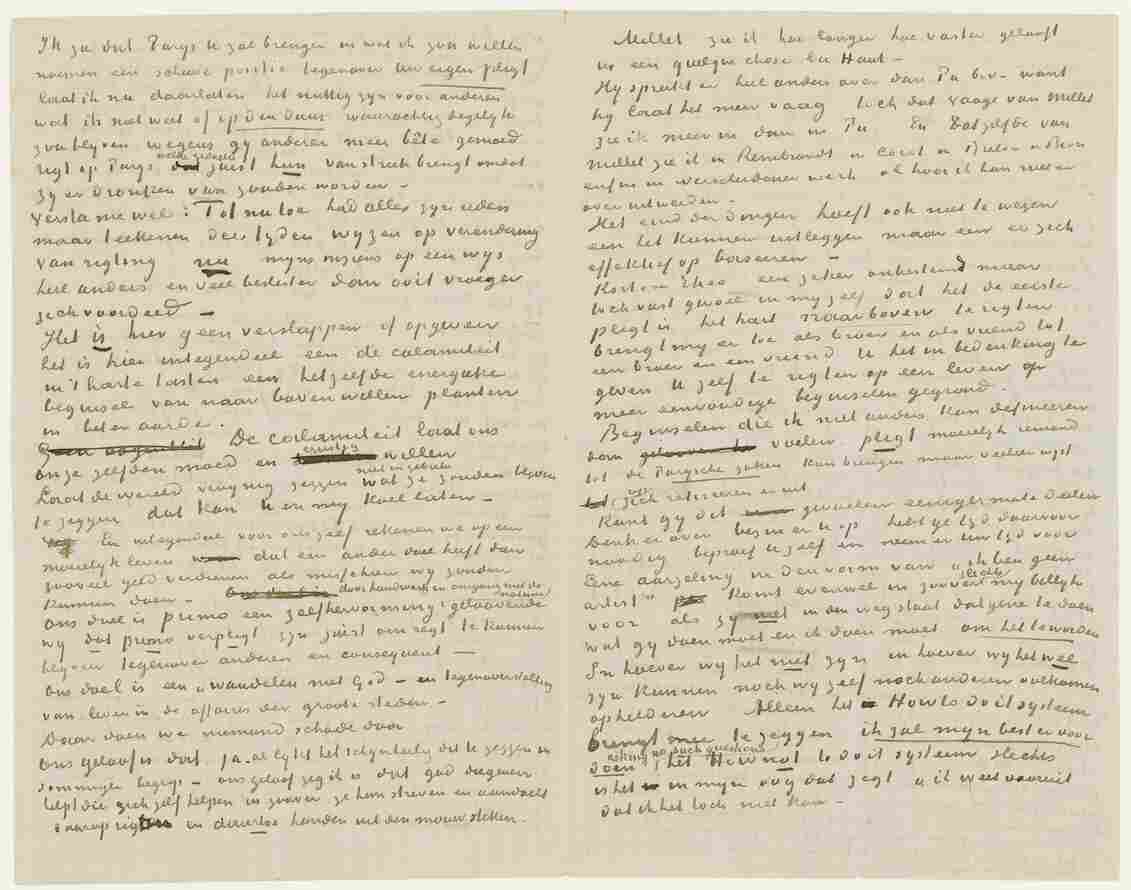 Ik zie dat Parijs U zal brengen in wat ik zou willen
noemen een scheeve positie tegenover Uw eigen pligt
laat ik nu daarlaten het nuttig zijn voor anderen
wat ik niet weet of op den duur waarachtig degelijk
zou blijven wegens gij anderen meer bête gemoed
regt op Parijs welks gewoel juist hun van streek brengt omdat
zij er dronken van zouden worden –
Versta me wel: Tot nu toe had alles zijn reden
maar teekenen der tijden wijzen op verandering
van rigting nu mijns inziens op een wijs
heel anders en veel beslister dan ooit vroeger
zich voordeed –
Het is hier geen verslappen of opgeven
het is hier integendeel een de calamiteit
in 't harte tasten een hetzelfde energieke
beginsel van naar boven willen planten
in beter aarde.
De calamiteit laat ons
onze zelfden moed en ernstig willen
Laat de wereld vinnig zeggen wat ze zouden
te zeggen dat kan U en mij koel laten –
En integendeel voor ons zelf rekenen we op een
moeielijk leven dat een ander doel heeft dan
zooveel geld verdienen als misschien wij zouden
kunnen doen – door handwerk en omgang met de natuur
ons doel is primo een zelfhervorming: geloovende
wij dat primo verpligt zijn juist om regt te kunnen
tegenover anderen en consequent –
ons doel is een „wandelen met God – in tegenoverstelling
van leven in de affaires der groote steden –
Daar doen we niemand schade door
ons geloof is dat, ja – al lijkt het schijnheilig dit te zeggen in
sommiger begrip – ons geloof zeg ik is dat God degenen
helpt die zich zelf helpen in zoover ze hun streven en aandacht
daarop rigten en daartoe handen uit den mouw steken.
Millet zie ik hoe langer hoe vaster gelooft
in een quelque chose là Haut –
Hij spreekt er heel anders over dan Pa bv. – want
hij laat het meer vaag toch dat vaage van Millet
zie ik meer in dan in Pa En datzelfde van
Millet zie ik in Rembrandt in Corot in Breton in Brion
enfin in verscheidener werk al hoor ik hun niet er
over uitweiden –
Het eind der dingen hoeft ook niet te wezen
een het kunnen uitleggen maar een er zich
effektief op baseeren –
Kort en Theo een zeker onbestemd maar
toch vast gevoel in mij zelf dat het de eerste
pligt is het hart naar boven te rigten
brengt mij er toe als broer en als vriend tot
een broer en een vriend U het in bedenking te
geven U zelf te rigten op een leven op
meer eenvoudige beginselen gegrond.
Beginselen die ik niet anders kan definieeren
dan voelen pligt moeielijk iemand
tot de Parijsche zaken kan brengen maar veeleer wijst
zich retireeren er uit
Kunt gij dit gevoelen eenigermate deelen
denk er over bezin er U op hebt ge tijd daarvoor
noodig beproef U zelf en neem er Uw tijd voor
Eene aarzeling in den vorm van „ik ben geen
artist” komt evenwel in zoover mij slechts billijk
voor als zij niet in den weg staat datgene te doen
wat gij doen moet en ik doen moet om het te worden
In hoever wij het niet zijn in hoever wij het wel
zijn kunnen noch wij zelf noch anderen volkomen
ophelderen Alleen het How to do it systeem
brengt mee te zeggen ik zal mijn best er voor
doen, asking no such questions het How not to do it systeem slechts
is het in mijn oog dat zegt „ik weet vooruit
dat ik het toch niet kan –